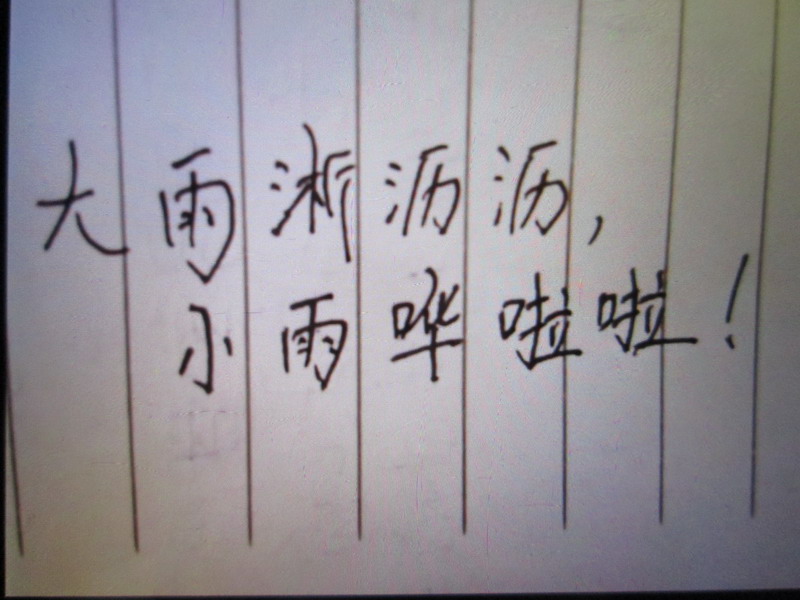 大雨淅沥沥,
小雨哗啦啦!